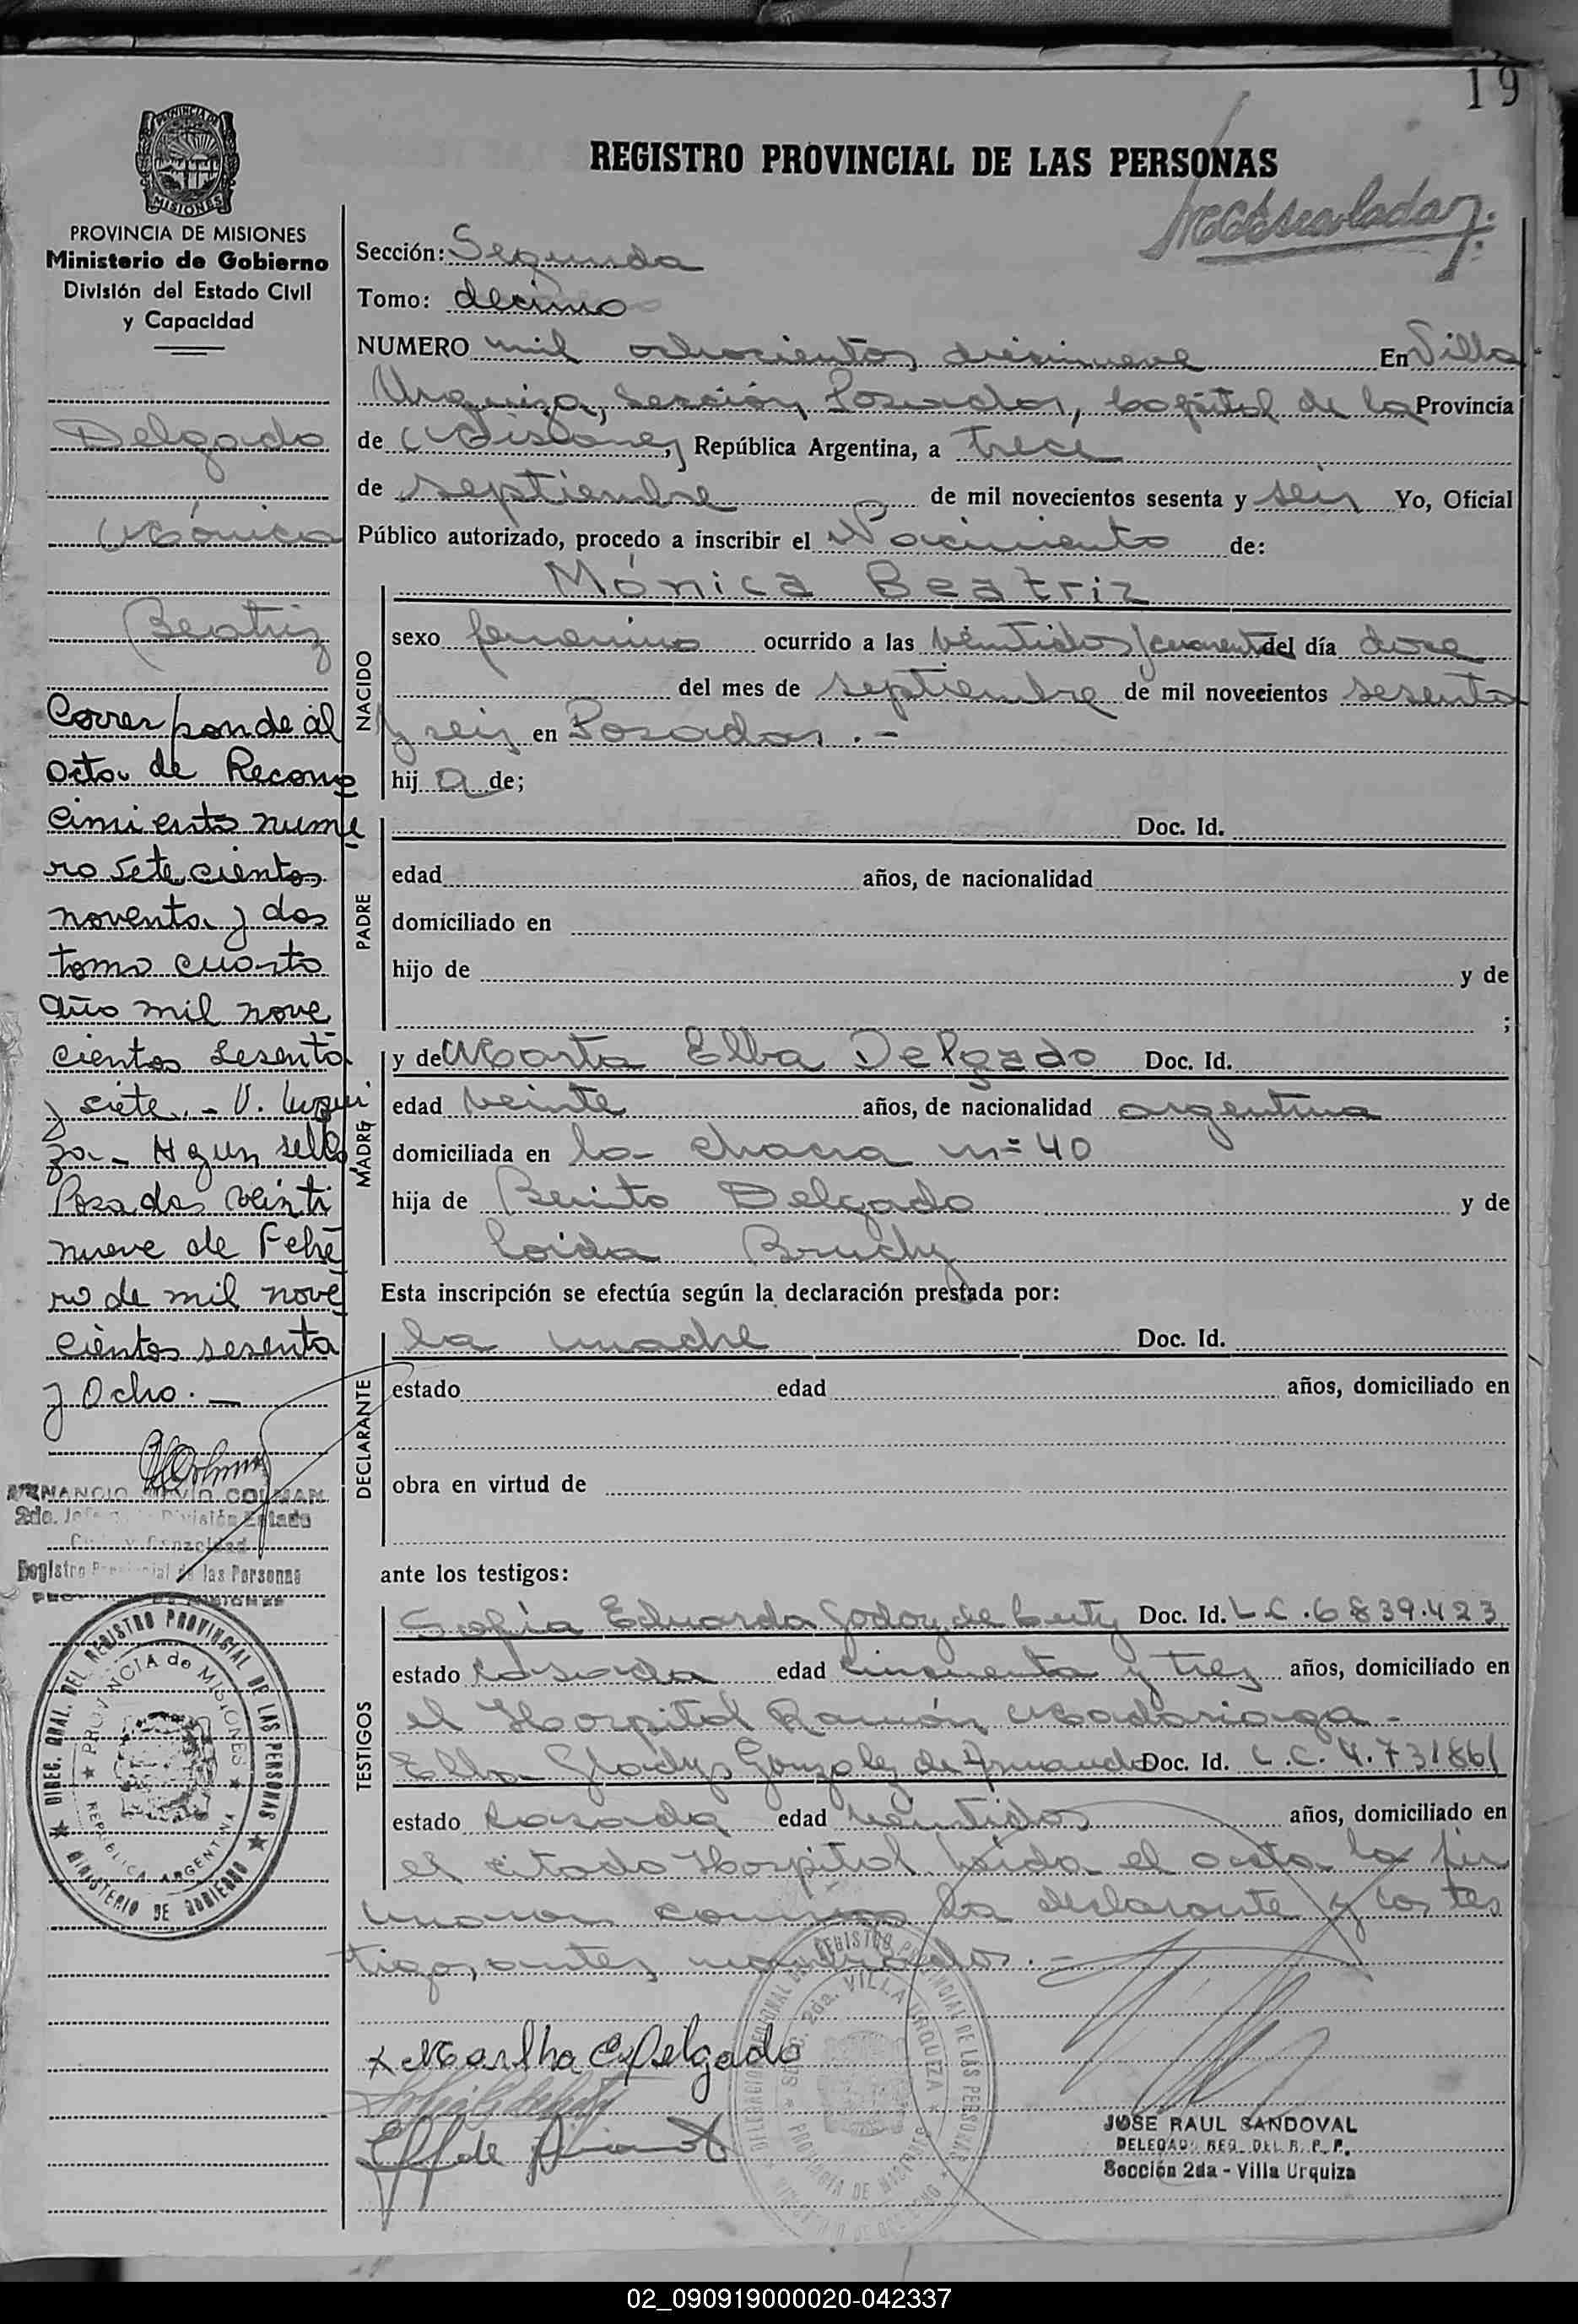 19
REGISTRO PROVINCIAL DE LAS PERSONAS
PROVINCIA DE MISIONES
MISIONES
PROVINCIA DE MISIONES
Ministerio de Gobierno
División del Estado Civil
y Capacidad
Delgado
Mónica
Beatriz
Corresponde al
acta de Recono
cimiento nume
ro Setecientos
noventa y dos
tomo cuarto
año mil nove
cientos sesenta
y siete.- V. Urqui
za.- H ay un sello
Posadas veinti
nueve de Febre
ro de mil nove
cientos sesenta
y Ocho.-
VENANCIO COLMAN
2do. Jefe División Estado
Civil y Capacidad
Registro Provincial de las Personas
PROVINCIA DE MISIONES
DIREC. GRAL. DEL REGISTRO PROVINCIAL DE LAS PERSONAS
MINISTERIO DE GOBIERNO
PROVINCIA de MISIONES
REPUBLICA ARGENTINA
Sección: Segunda
Tomo: decimo
NUMERO mil ochocientos diecinueve En Villa
Urquiza, Sección Posadas, Capital de la Provincia
de Misiones, República Argentina, a trece
de septiembre de mil novecientos sesenta y seis Yo, Oficial
Público autorizado, procedo a inscribir el Nacimiento de:
NACIDO
Mónica Beatriz
sexo femenino ocurrido a las veintidos/cuarenta del día doce
del mes de septiembre de mil novecientos sesenta
y seis en Posadas.-
hij a de;
PADRE
Doc. Id.
edad años, de nacionalidad
domiciliado en
hijo de y de
;
MADRE
y de Marta Elba Delgado Doc. Id.
edad veinte años, de nacionalidad argentina
domiciliada en la chacra nº 40
hija de Benito Delgado y de
Loida Bruchy
Esta inscripción se efectúa según la declaración prestada por:
DECLARANTE
la madre Doc. Id.
estado edad años, domiciliado en
obra en virtud de
ante los testigos:
TESTIGOS
Sofia Eduarda Godoy de Doc. Id. L.C.6839.423
estado casada edad cincuenta y tres años, domiciliado en
el Hospital Ramón Madariaga-
Elba Gladys Gonzalez de Doc. Id. L.C. 4.731861
estado casada edad veintidos años, domiciliado en
el citado Hospital. Leida el acta la fir
maron conmigo la declarante y los tes
tigos antes nombrados.-
x Martha E Delgado
DELEGACION REGIONAL DEL REGISTRO PROVINCIAL DE LAS PERSONAS
SECC. 2da. VILLA URQUIZA
PROVINCIA DE MISIONES
MINISTERIO DE GOBIERNO
JOSE RAUL SANDOVAL
DELEGADO REG. DEL R. P. P.
Sección 2da - Villa Urquiza
02_090919000020-042337